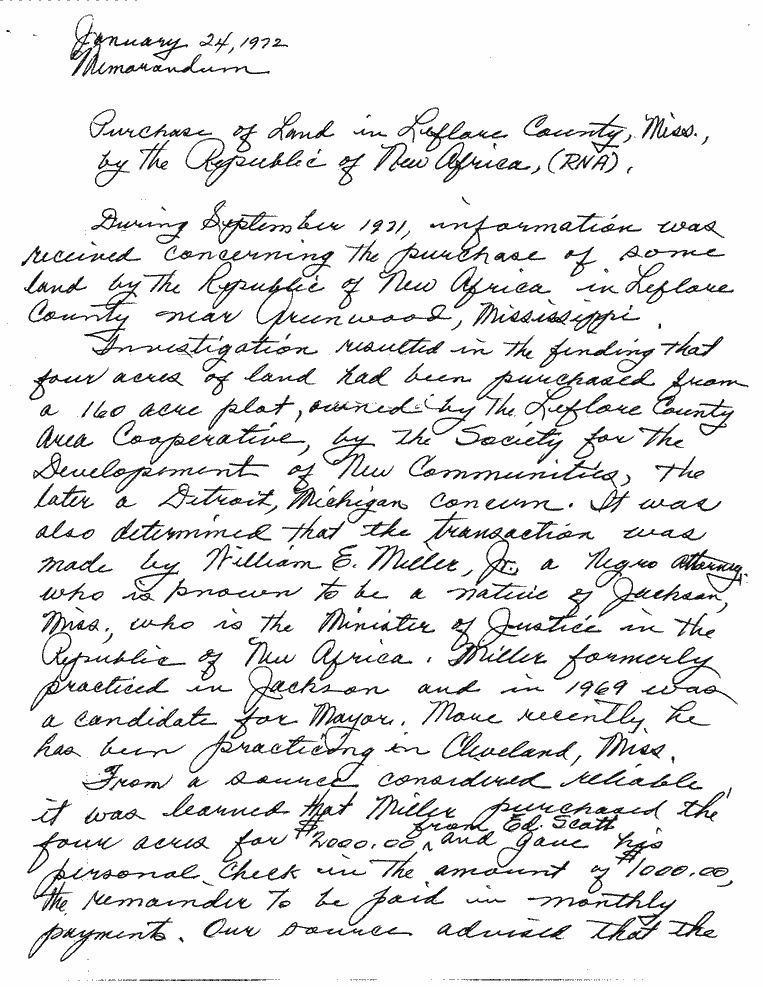 January 24, 1972
Memorandum
Purchase of Land in Leflore County, Miss.,
by the Republic of New Africa, (RNA).
During September 1971, information was
received concerning the purchase of some
land by the Republic of New Africa in Leflore
County near Greenwood, Mississippi.
Investigation resulted in the finding that
four acres of land had been purchased from
a 160 acre plot, owned by the Leflore County
Area Cooperative, by the Society for the
Development of New Communities, the
later a Detroit, Michigan concern. It was
also determined that the transaction was
made by William E. Miller, Jr. a Negro attorney
who is known to be a native of Jackson,
Miss., who is the Minister of Justice in the
Republic of New Africa. Miller formerly
practiced in Jackson and in 1969 was
a candidate for Mayor. More recently he
has been practicing in Cleveland, Miss.
From a source considered reliable,
it was learned that Miller purchased the
four acres for $2000.00 from Ed. Scott and gave his
personal check in the amount of $1000.00,
the remainder to be paid in monthly
payments. Our source advised that the